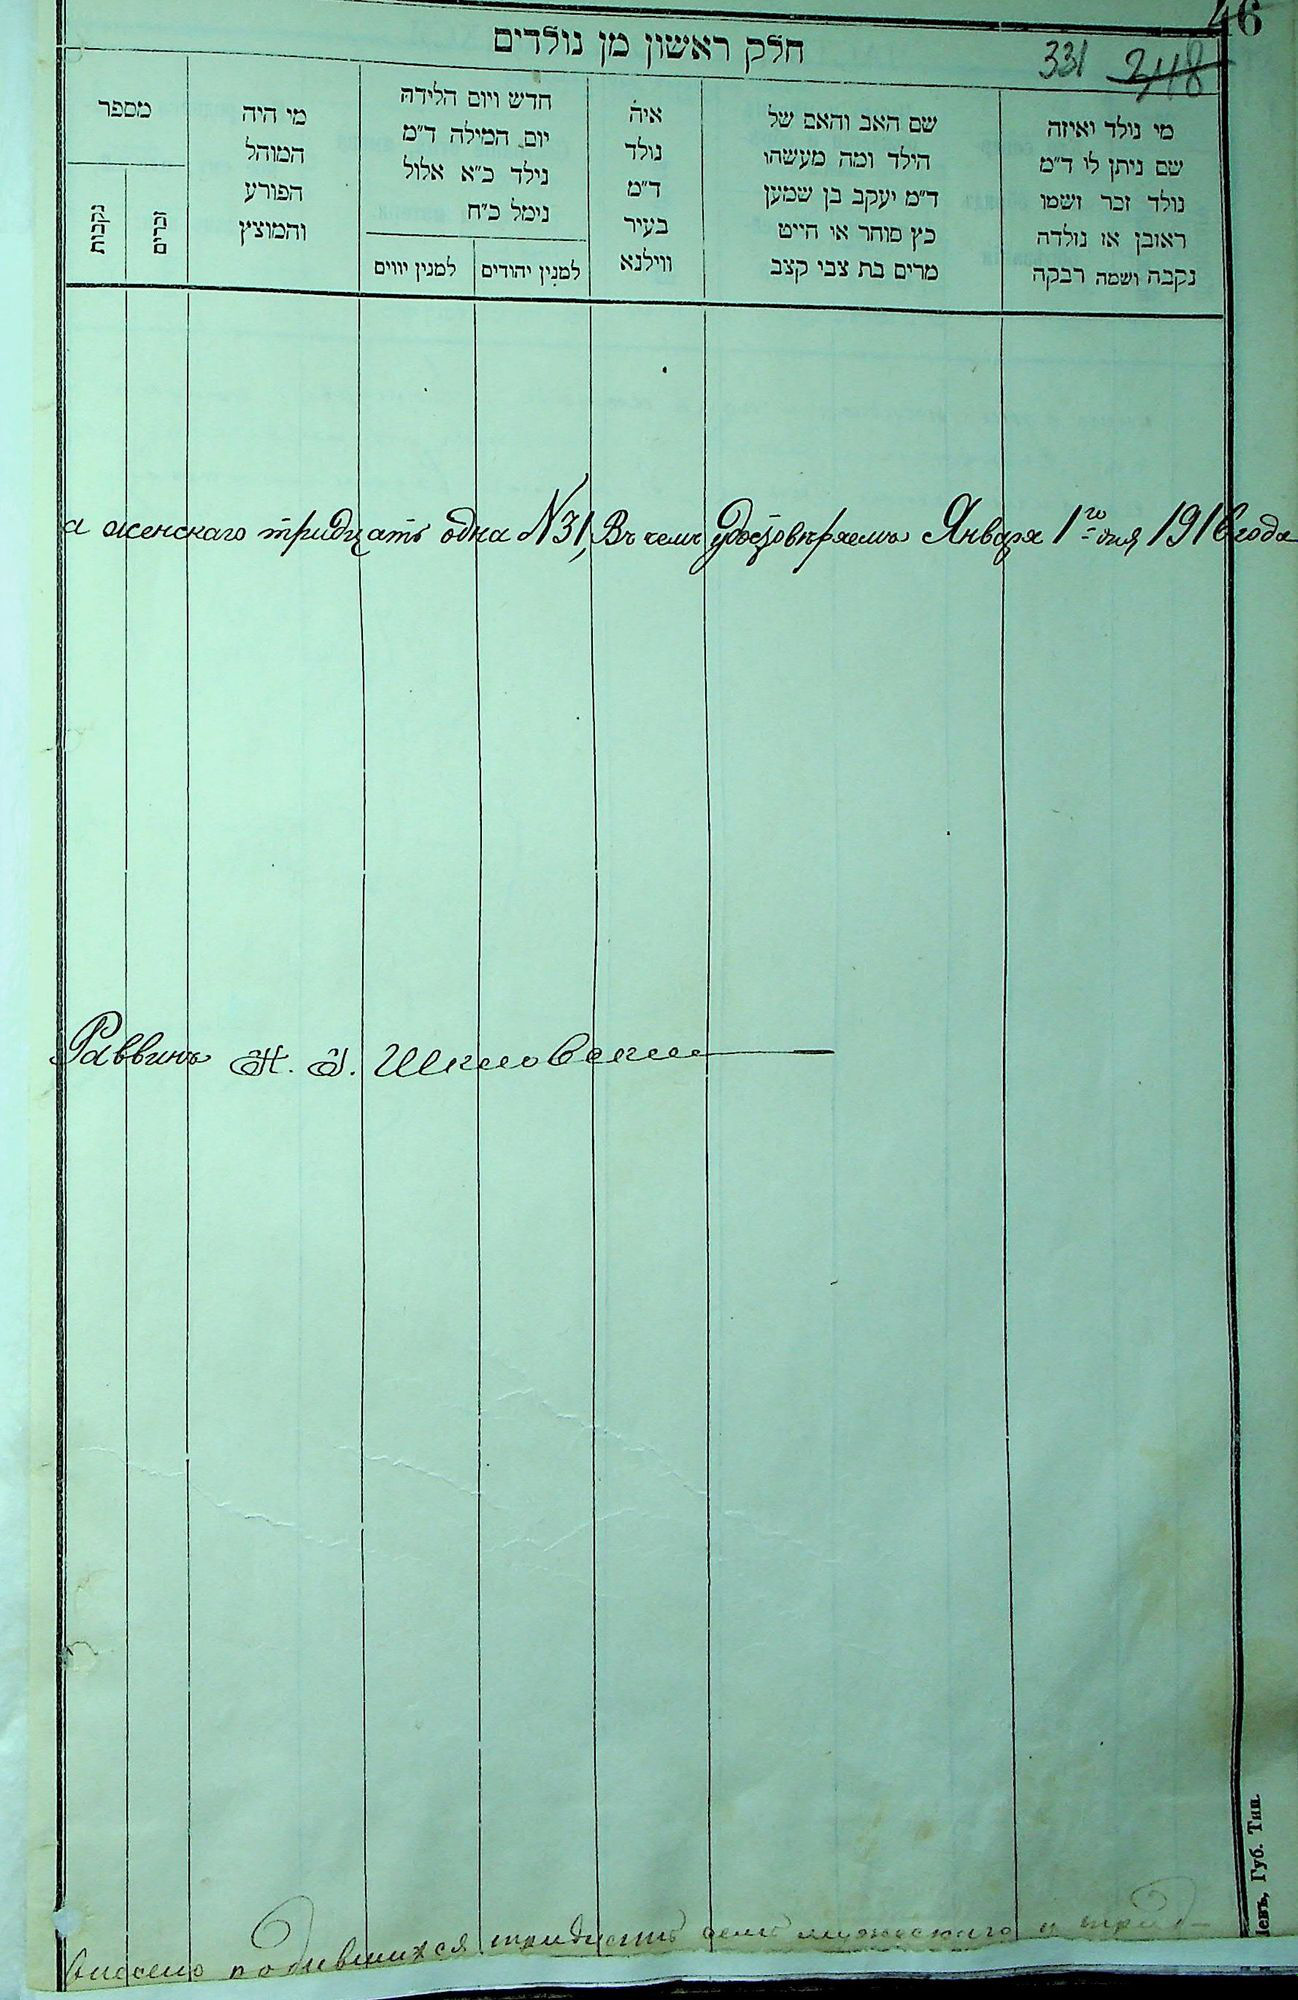 46
חלק ראשון מן נולדים
331 248
מי נולד ואיזה
שם ניתן לו ד״מ
נולד זכר ושמו
ראובן או נולדה
נקבה ושמה רבקה
שם האב והאם של
הילד ומה מעשהו
ד״מ יעקב בן שמען
כץ סוחר או חייט
מרים בת צבי קצב
איה
נולד
ד״מ
בעיר
ווילנא
חדש ויום הלידה
יום המילה ד״מ
נילד כ״א אלול
נימל כ״ח
למנין יהודים
למנין יווים
מי היה
המוהל
הפורע
והמוצץ
מספר
זכרים
נקבות
а женскаго тридцать одна №31, Въ чемъ удостовѣряемъ Января 1го дня 1916 года
Раввинъ
внесено родившихся тридцать семь мужескаго и трид-
Губ. Тип.